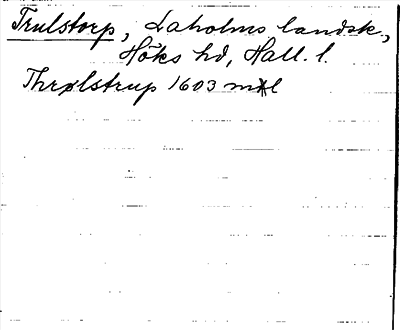 Trulstorp, Laholms landsk.,
Höks hd, Hall. l.
Thrølstrup 1603